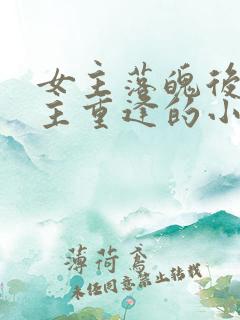 女主落魄後
主重逢的小
薄荷鸢
未经同意禁止转载